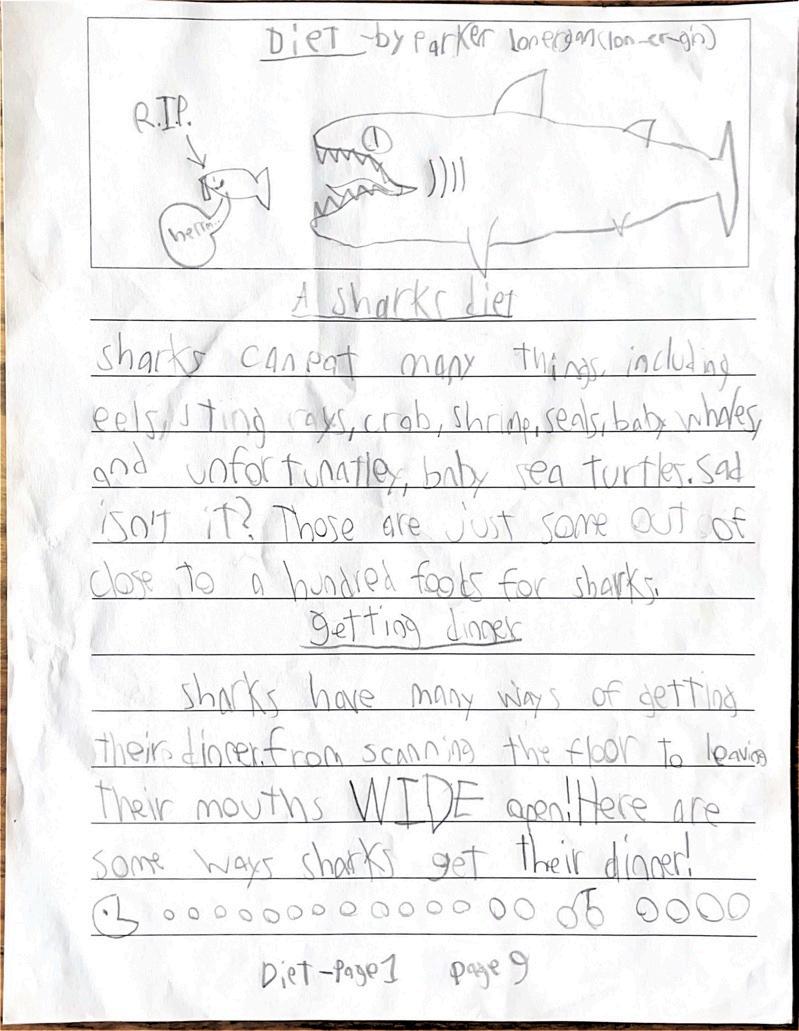 Diet -by Parker Lonergan(lon-er-gin)
R.I.P.
herm...
A sharks diet
sharks can eat many things, including
eels, sting rays, crab, shrimp, seals, baby whales,
and unfortunatley, baby sea turtles. Sad
isn't it? Those are just some out of
close to a hundred foods for sharks.
getting dinner
sharks have many ways of getting
their dinner. from scanning the floor to leaving
their mouths WIDE open! Here are
some ways sharks get their dinner!
Diet-Page 1 page 9